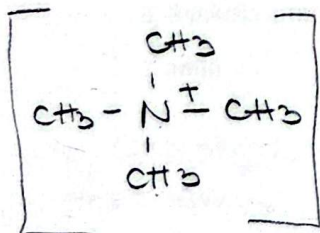 CH3
CH3 - N + - CH3
CH3